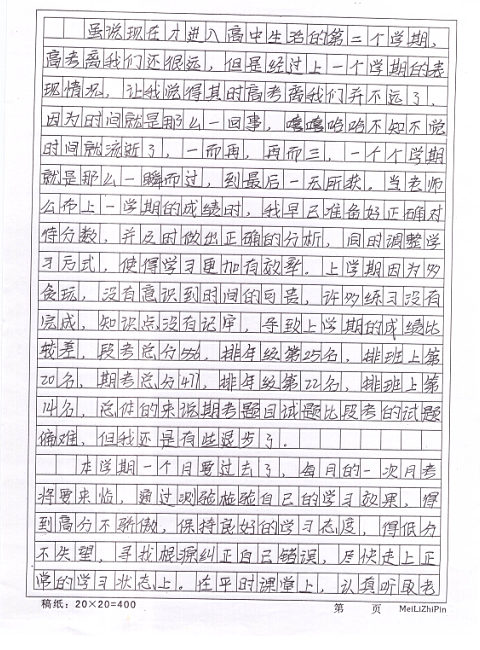 虽说现在才进入高中生活的第二个学期，
高考离我们还很远，但是经过上一个学期的表
现情况，让我觉得其时高考离我们并不远了，
因为时间就是那么一回事，嘻嘻哈哈不知不觉
时间就流逝了，一而再，再而三，一个个学期
就是那么一瞬而过，到最后一无所获。当老师
公布上一学期的成绩时，我早已准备好正确对
待分数，并及时做出正确的分析，同时调整学
习方式，使得学习更加有效率。上学期因为多
贪玩，没有意识到时间的可贵，许多练习没有
完成，知识点没有记牢，导致上学期的成绩比
较差，段考总分556，排年级第25名，排班上第
20名，期考总分477，排年级第22名，排班上第
14名，总体的来说期考题目试题比段考的试题
偏难，但我还是有些退步了。
本学期一个月要过去了，每月的一次月考
将要来临，通过测验检验自己的学习效果，得
到高分不骄傲，保持良好的学习态度，得低分
不失望，寻找根源纠正自己错误，尽快走上正
常的学习状态上。在平时课堂上，认真听取老
稿纸：20×20=400 第 页 MeiLiZhiPin